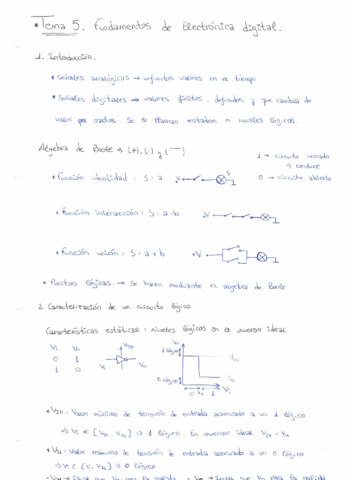 * Tema 5. Fundamentos de Electrónica digital.
1. Introducción.
* Señales analógicas → infinitos valores en el tiempo
* Señales digitales → valores finitos, definidos y que cambia de
valor por saltos. Se le llaman estados o niveles lógicos.
Algebra de Boole → (+), (·) y (‾)
1 → circuito cerrado
o conduce
0 → circuito abierto
* Función identidad : S = a
S
* Función intersección : S = a · b
V
* Función unión : S = a + b
+V
* Puertas lógicas → Se hacen mediante el algebra de Boole
2. Caracterización de un circuito lógico
Características estáticas : Niveles lógicos en el inversor ideal
Vi Vo
0 1
1 0
* VIH : Valor mínimo de tensión de entrada asociado a un 1 lógico
⇒ Vi ∈ [VIH, VCC] ⇒ 1 lógico En inversor ideal VIH = Vm
* VIL : Valor máximo de tensión de entrada asociado a un 0 lógico
⇒ Vi ∈ [0, VIL] → 0 lógico